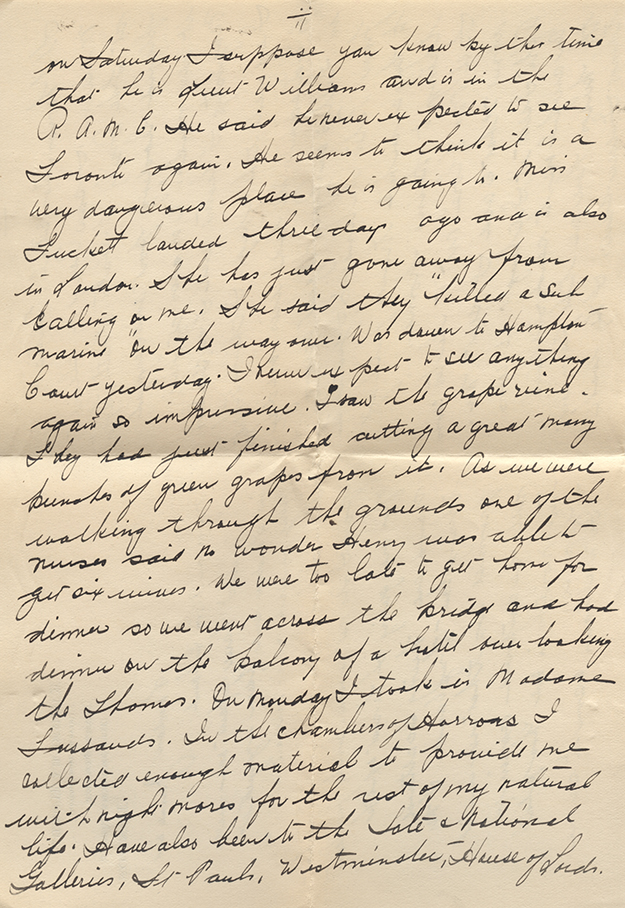 ii
on Saturday I suppose you know by this time
that he is Lieut Williams and is in the
R. A. M. C. He said he never expected to see
Toronto again. He seems to think it is a
very dangerous place he is going to. Miss
Luckett landed three days ago and is also
in London. She has just gone away from
calling on me. She said they "killed a sub
marine" on the way over. Was down to Hampton
Court yesterday. I never expect to see anything
again so impressive. I saw the grape vine.
They had just finished cutting a great many
bunches of green grapes from it. As we were
walking through the grounds one of the
nurses said no wonder Henry was able to
get six wives. We were too late to get home for
dinner so we went across the bridge and had
dinner on the balcony of a hotel over looking
the Thames. On Monday I took in Madame
Tussauds. In the chambers of Horrors I
collected enough material to provide me
with night mares for the rest of my natural
life. Have also been to the Tate & National
Galleries, St Pauls, Westminster, House of Lords.